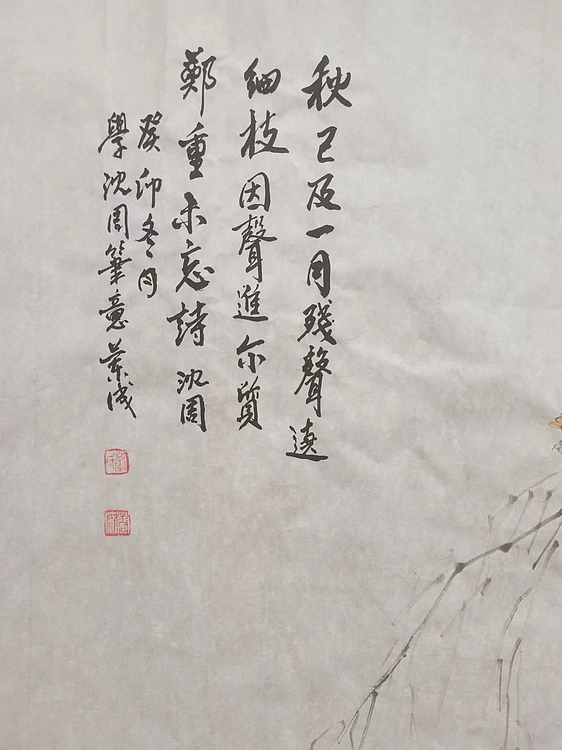 秋已及一月殘聲遶
細枝因聲進尒質
鄭重未忘詩 沈周
癸卯冬月
學沈周筆意